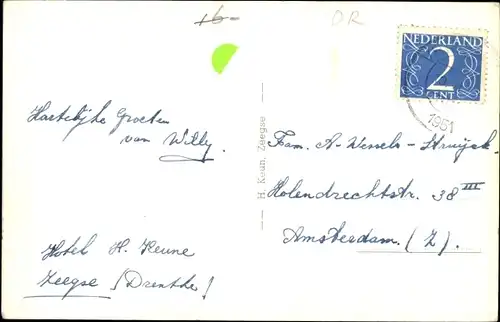 16-
OR
NEDERLAND
2
CENT
1951
Hartelijke Groeten
van Willy.
Hotel H. Keune
Zeegse (Drenthe)
H. Keun. Zeegse
Fam. A. Wessels-Struijck.
Holendrechtstr. 38 III
Amsterdam. (Z).